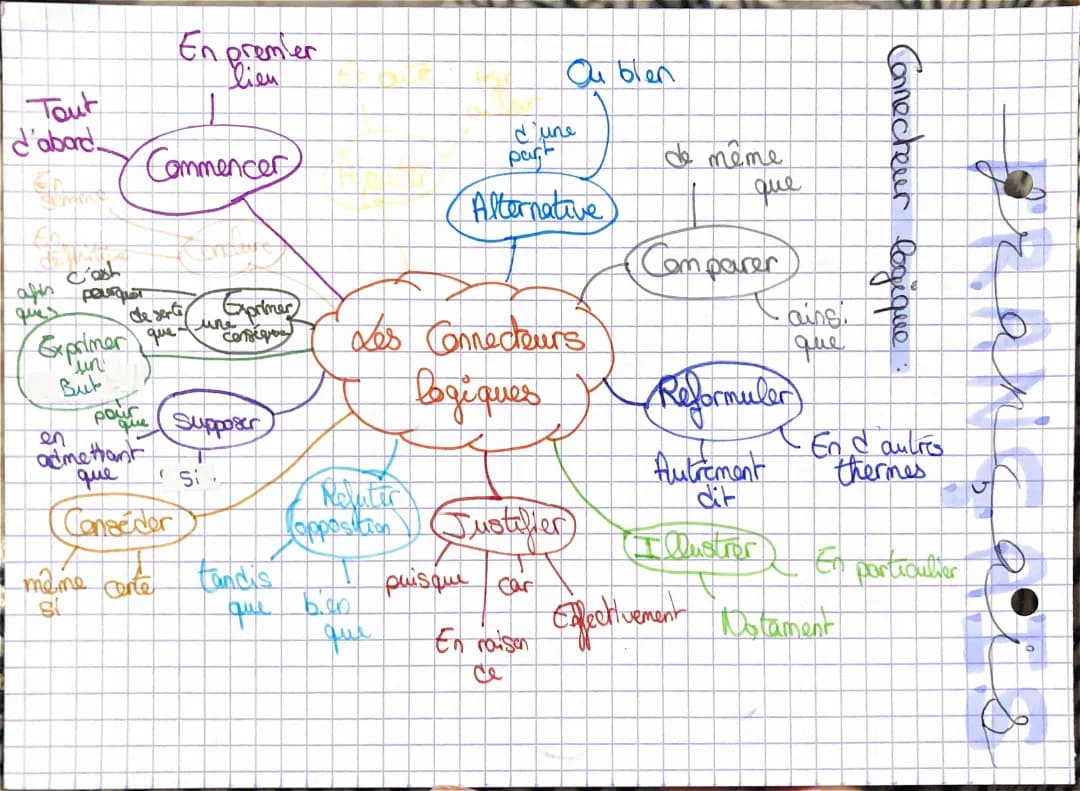 Français
FRANÇAIS
Connecteur logique :
Les Connecteurs
logiques
Commencer
En premier
lieu
Tout
d'abord
En outre
Ajouter
Alternative
d'une
part
Ou bien
Comparer
de même
que
ainsi
que
Réformuler
Autrement
dit
En d'autres
thermes
Illustrer
En particulier
Notament
Justifier
puisque
car
En raison
de
Effectivement
Réfuter
opposition
tandis
que
bien
que
Conséder
même
si
certe
Supposer
en
admettant
que
Si
Exprimer
un
But
afin
que
pour
que
Exprimer
une
conséquence
c'est
pourquoi
de sorte
que
Conclure
En
somme
En
définitive